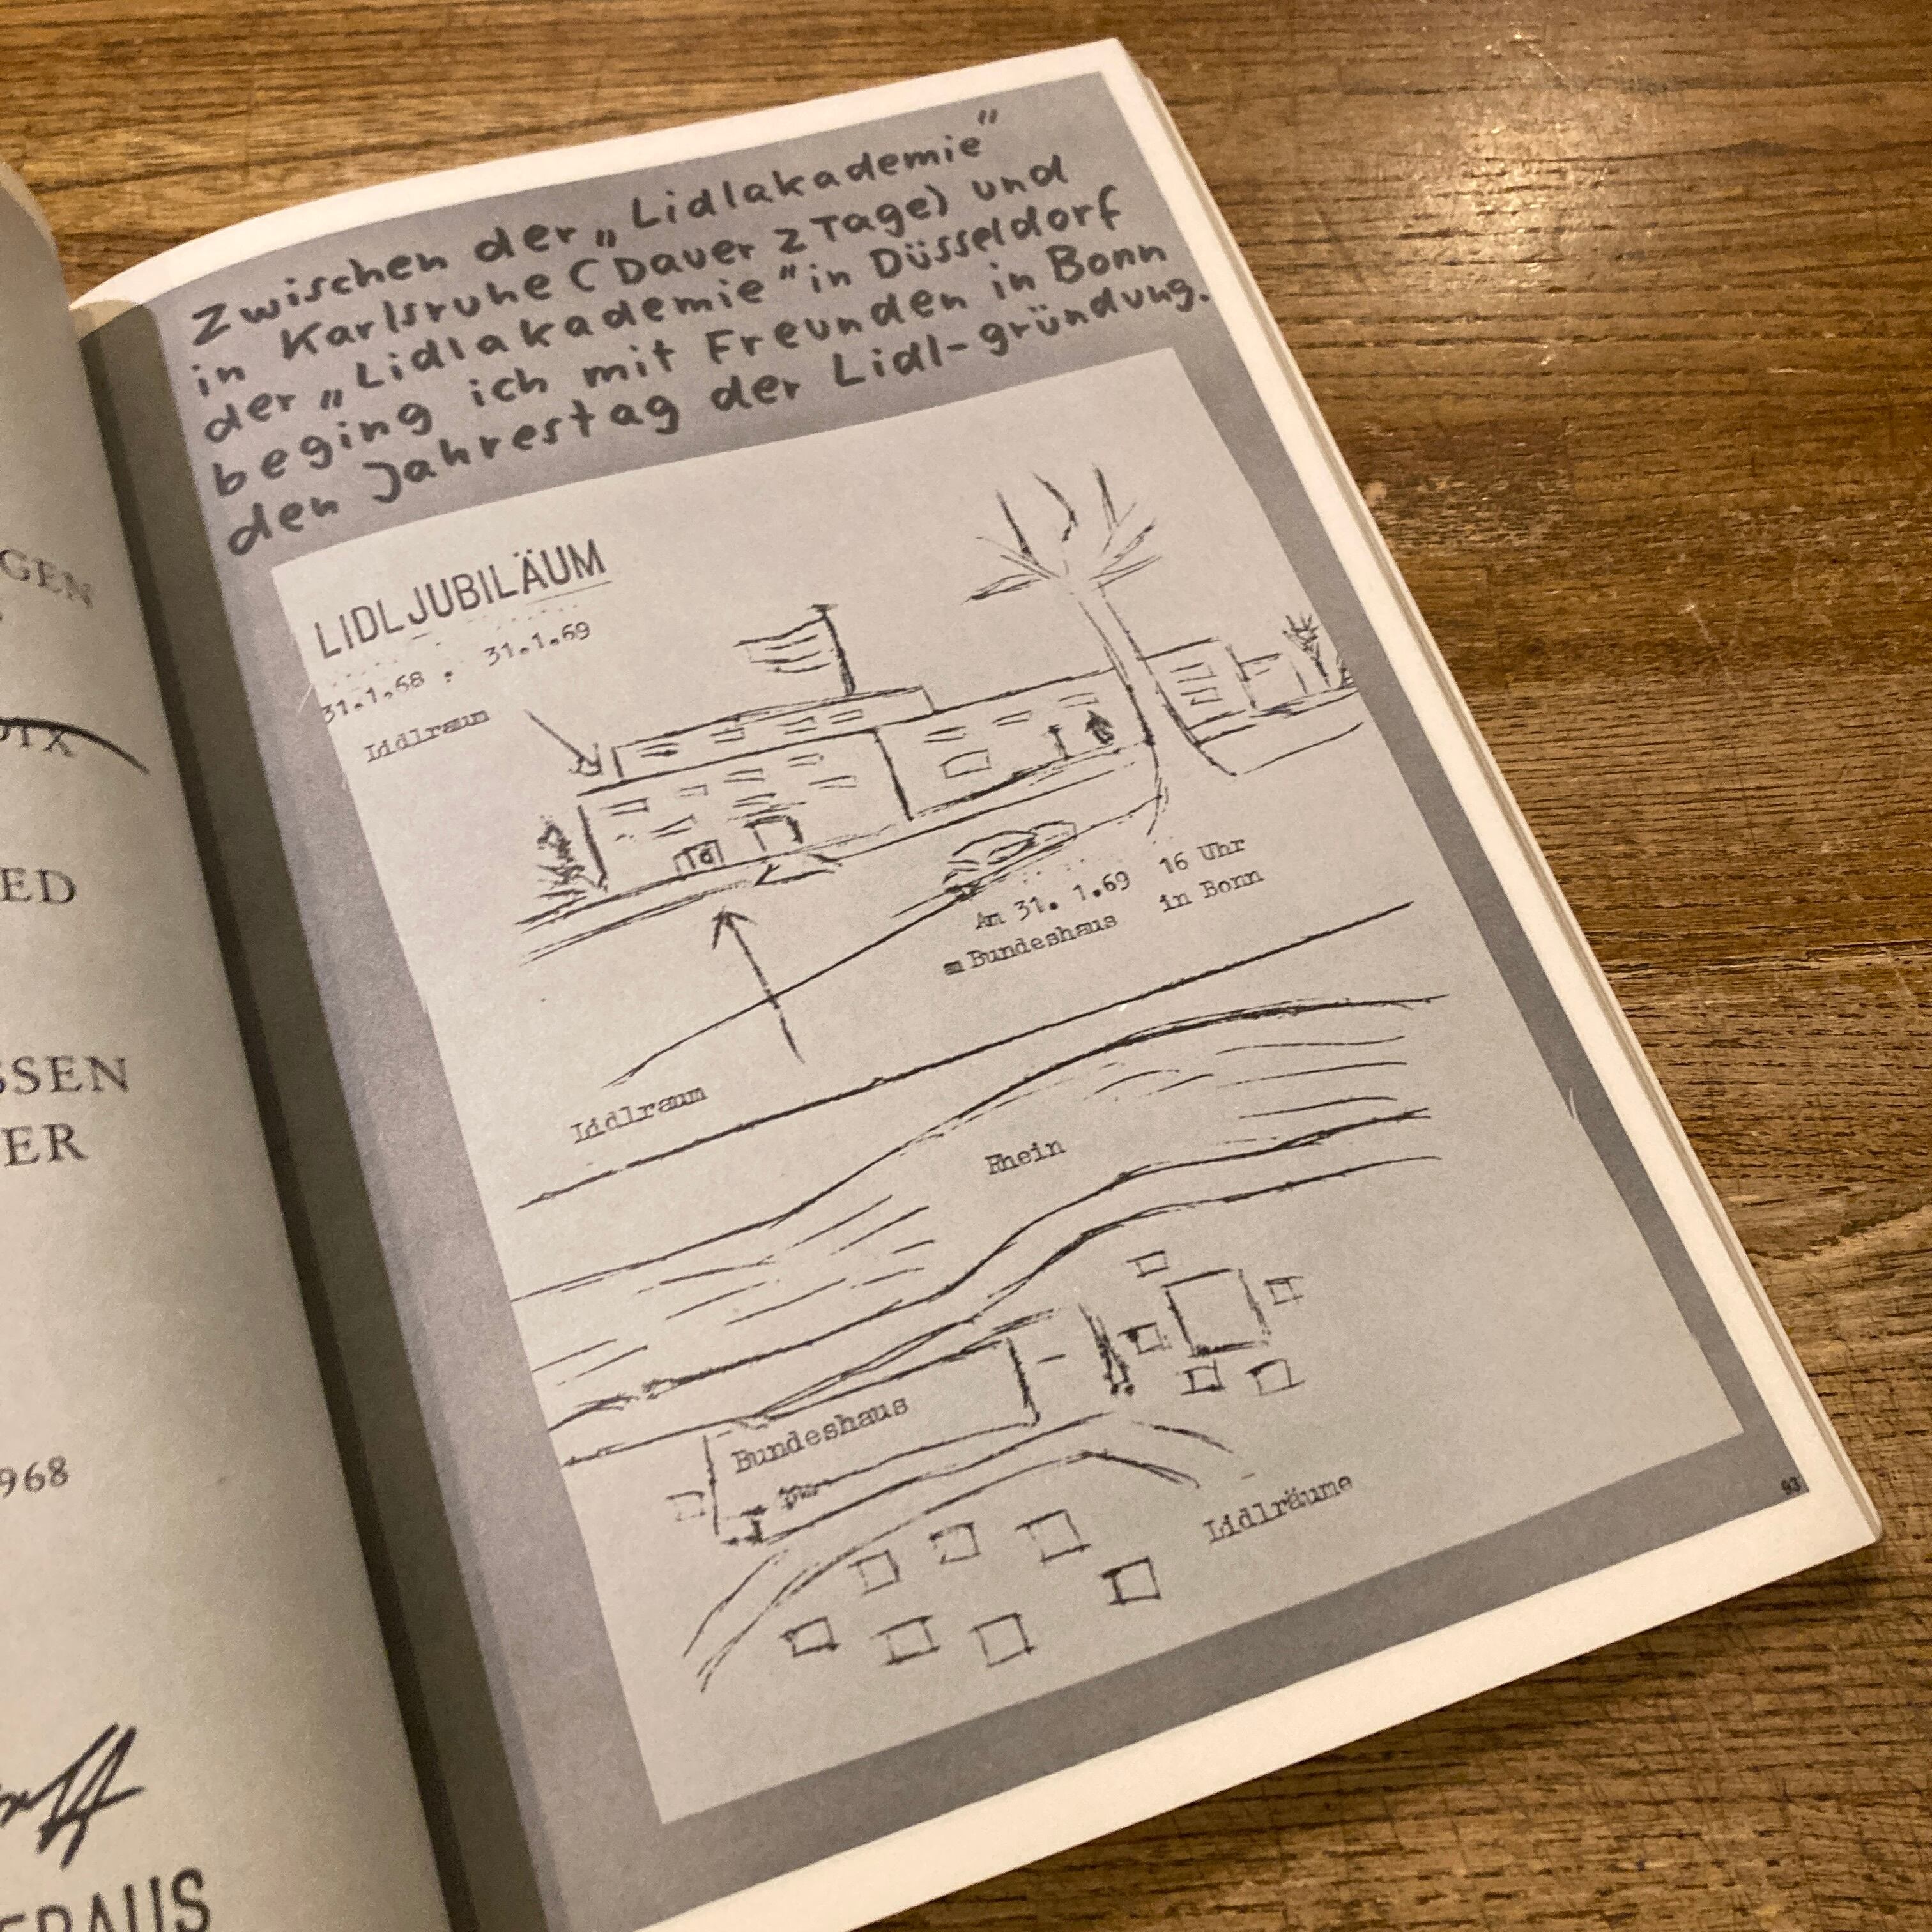 GEN
ED
SSEN
ER
968
ERAUS
Zwischen der „Lidlakademie"
in Karlsruhe (Dauer 2 Tage) und
der „Lidlakademie" in Düsseldorf
beging ich mit Freunden in Bonn
den Jahrestag der Lidl-gründung.
LIDLJUBILÄUM
31.1.68 . 31.1.69
Lidlraum
Am 31. 1.69 16 Uhr
Bundeshaus in Bonn
Lidlraum
Rhein
Bundeshaus
Lidlräume
93